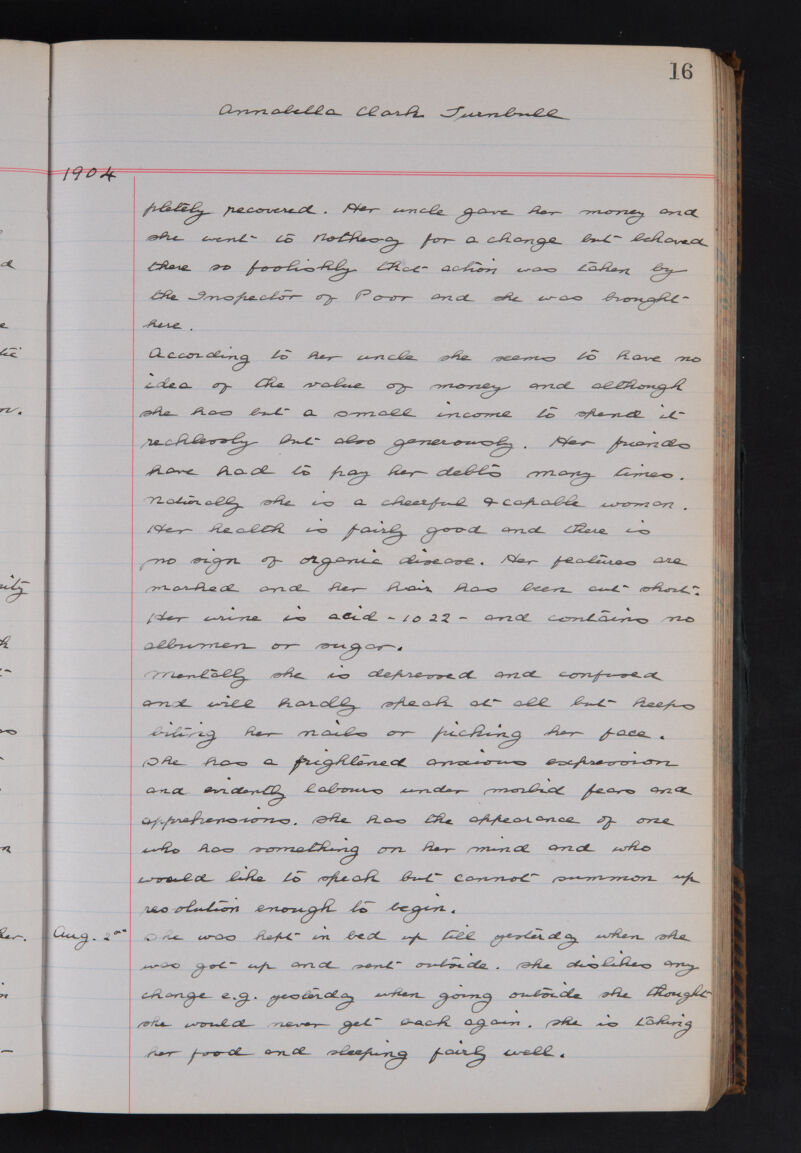 16
Annabella Clark Turnbull
1904
pletely recovered. Her uncle gave her money and
she went to Rothesay for a change but behaved
there so foolishly that action was taken by
the Inspector of Poor and she was brought
here.
According to her uncle she seems to have no
idea of the value of money and although
she has but a small income to spend it
recklessly but also generously. Her friends
have had to pay her debts many times.
Naturally she is a cheerful & capable woman.
Her health is fairly good and there is
no sign of organic disease. Her features are
marked and her hair has been cut short.
Her urine is acid - 1022 - and contains no
albumen or sugar.
Mentally she is depressed and confused
and will hardly speak at all but keeps
biting her nails or picking her face.
She has a frightened anxious expression
and evidently labours under morbid fears and
apprehensions. She has the appearance of one
who has something on her mind and who
would like to speak but cannot summon up
resolution enough to begin.
Aug. 2nd She was kept in bed up till yesterday when she
was got up and sent outside. She dislikes any
change e.g. yesterday when going outside she thought
she would never get back again. She is taking
her food and sleeping fairly well.